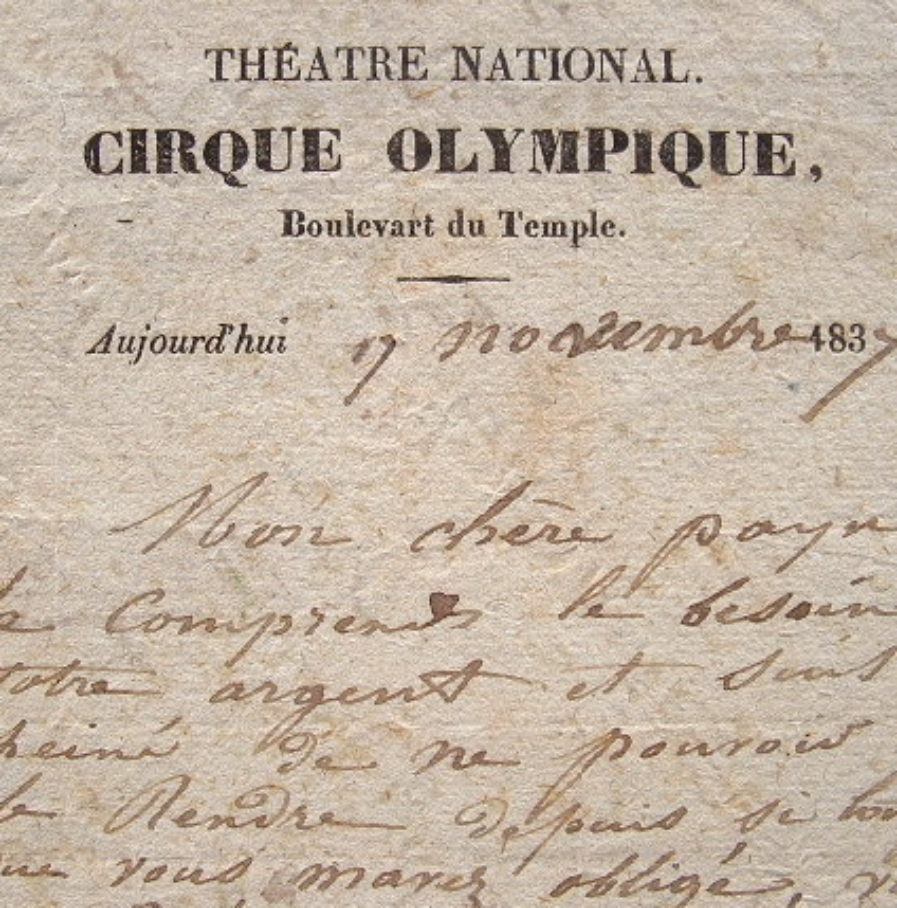 THÉATRE NATIONAL.
CIRQUE OLYMPIQUE,
Boulevart du Temple.
Aujourd'hui 17 novembre 1837
Mon chère payn
Comprends le besoin
votre argent et suis
peiné de ne pouvoir
le Rendre depuis si
que vous mavez obligé,